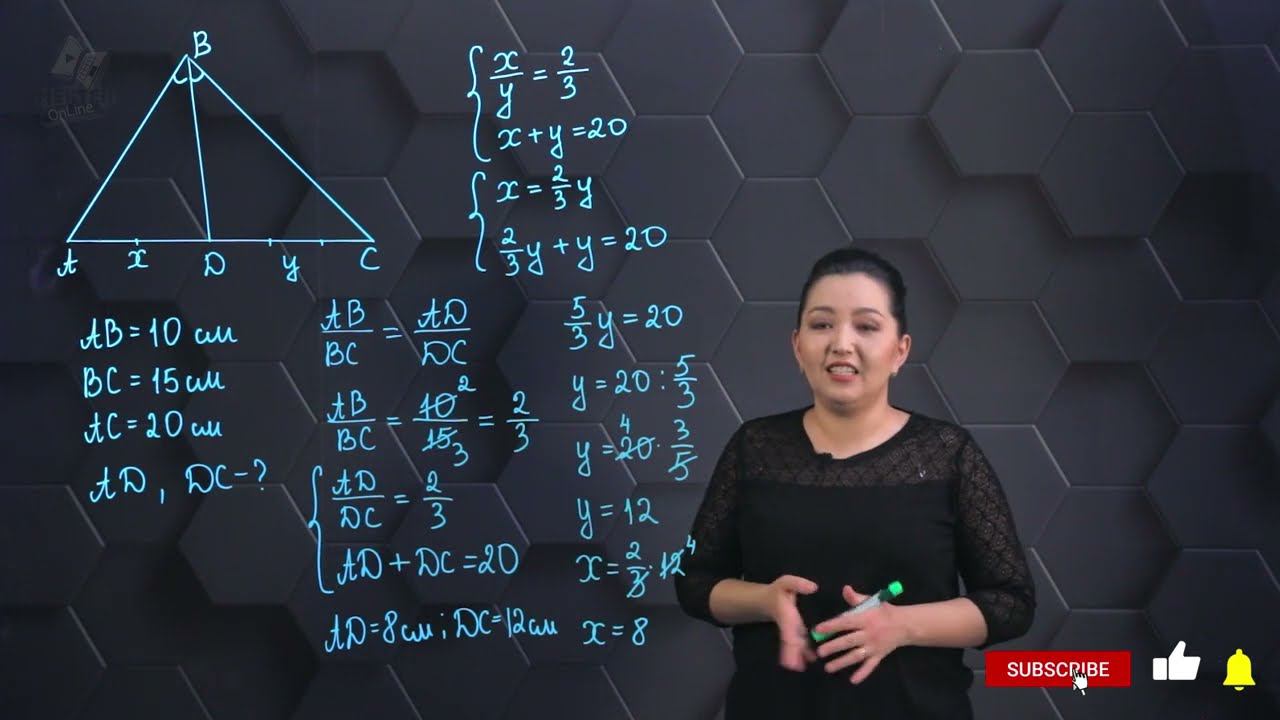 OnLine
B
A x D y C
AB = 10 см
BC = 15 см
AC = 20 см
AD, DC - ?
AB/BC = AD/DC
AB/BC = 10 2/15 3 = 2/3
{ AD/DC = 2/3
AD + DC = 20
AD = 8 см; DC = 12 см
{ x/y = 2/3
x + y = 20
{ x = 2/3 y
2/3 y + y = 20
5/3 y = 20
y = 20 : 5/3
y = 20 4 · 3/5
y = 12
x = 2/3 · 12 4
x = 8
SUBSCRIBE